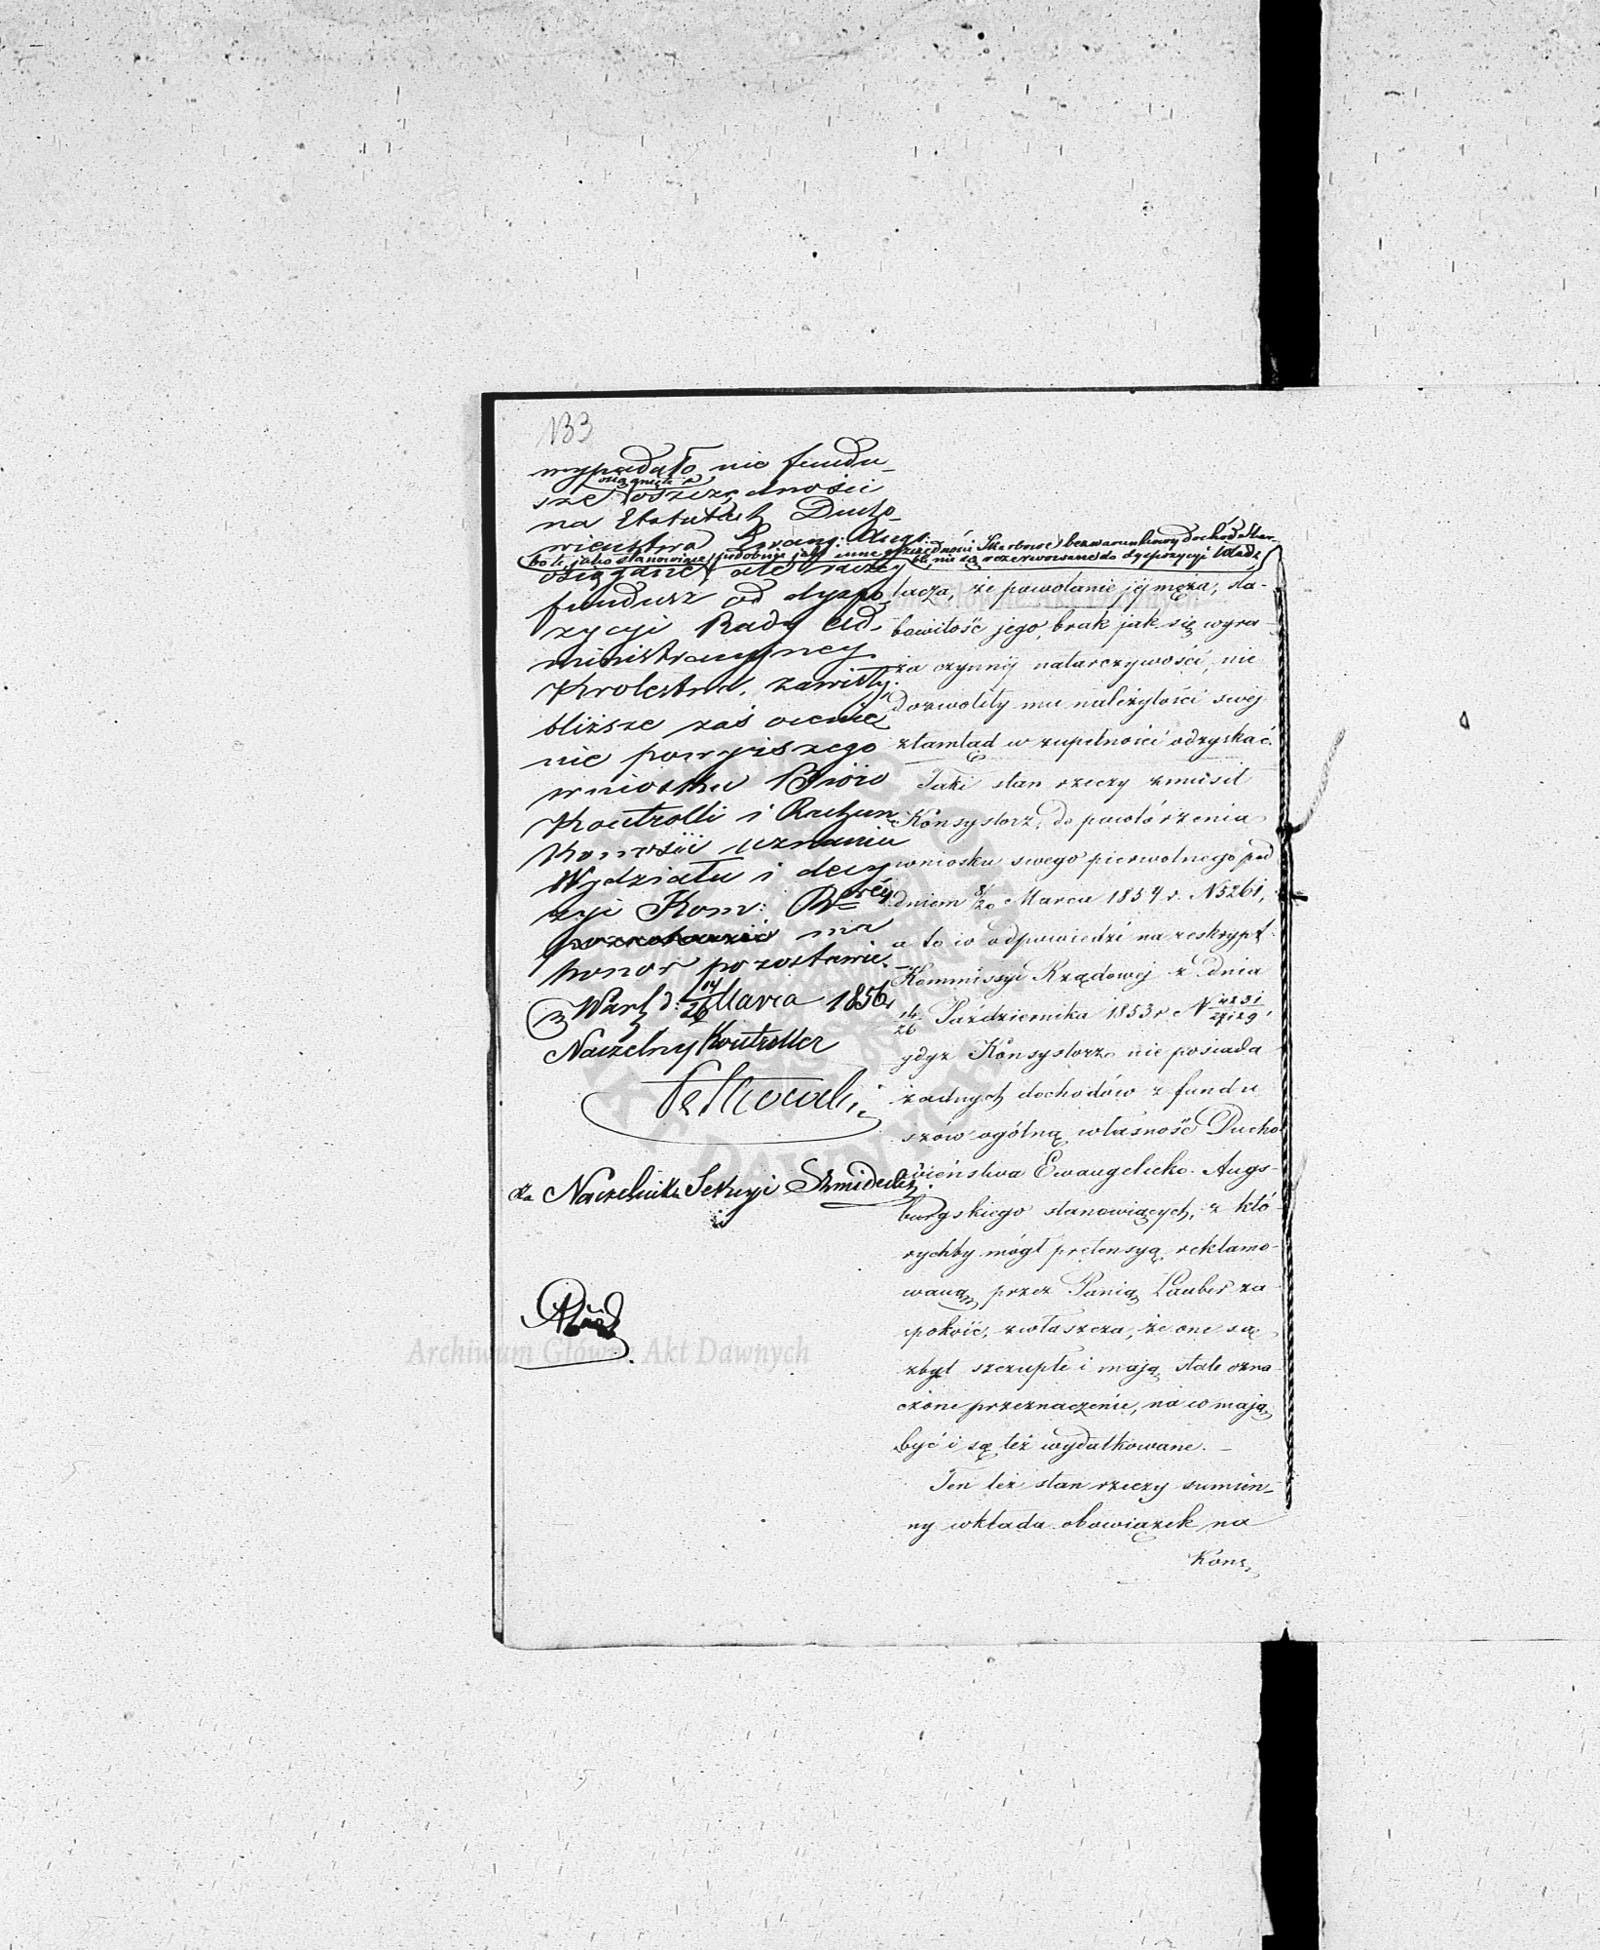 133
wypadało nie fundu-
osiągnięte z
sze oszczędności
na Etatach Ducho-
wieństwa Ewang: Augs:
bo te jako stanowiące podobnie jak inne oszczędności Skarbowe bezwarunkowy dochód Skar-
bu, nie są rezerwowane do dyspozycyi Władz,
osiągane ale raczej
fundusz od dyspo
zycyi Rady Ad-
ministracyjney
Królestwa, zawisły.
bliższe zaś ocenie
nie powyższego
wniosku Bióro
Kontrolli i Rachun
kowości uznaniu
Wydziału i decy
zyi Kom: Rz
ma
honor pozostawić.
Warsz d: 14/26 Marca 1856
Naczelny Kontroller
za Naczelnika Sekcyi Szmideck
tacza, że powołanie jej męża, sła-
bowitość jego, brak jak się wyra-
ża czynnej natarczywości, nie
dozwoliły mu należytości swej
ztamtąd w zupełności odzyskać.
Taki stan rzeczy zmusił
Konsystorz, do powtórzenia
wniosku swego pierwotnego pod
dniem 8/20 Marca 1854 r. N 5261,
a to w odpowiedzi na reskrypt
Kommissyi Rządowej z dnia
14/26 Października 1853 r. N
gdyż Konsystorz nie posiada
żadnych dochodów z fundu
szów ogólną własność Ducho
wieństwa Ewangelicko-Augs-
burgskiego stanowiących, z któ-
rychby mógł pretensyą reklamo-
waną przez Panią Lauber za-
spokoić, zwłaszcza, że one są
zbyt szczupłe i mają stałe ozna
czone przeznaczenie, na co mają
być i są też wydatkowane. –
Ten też stan rzeczy sumien-
ny wkłada obowiązek na
Kons,
Archiwum Główne Akt Dawnych